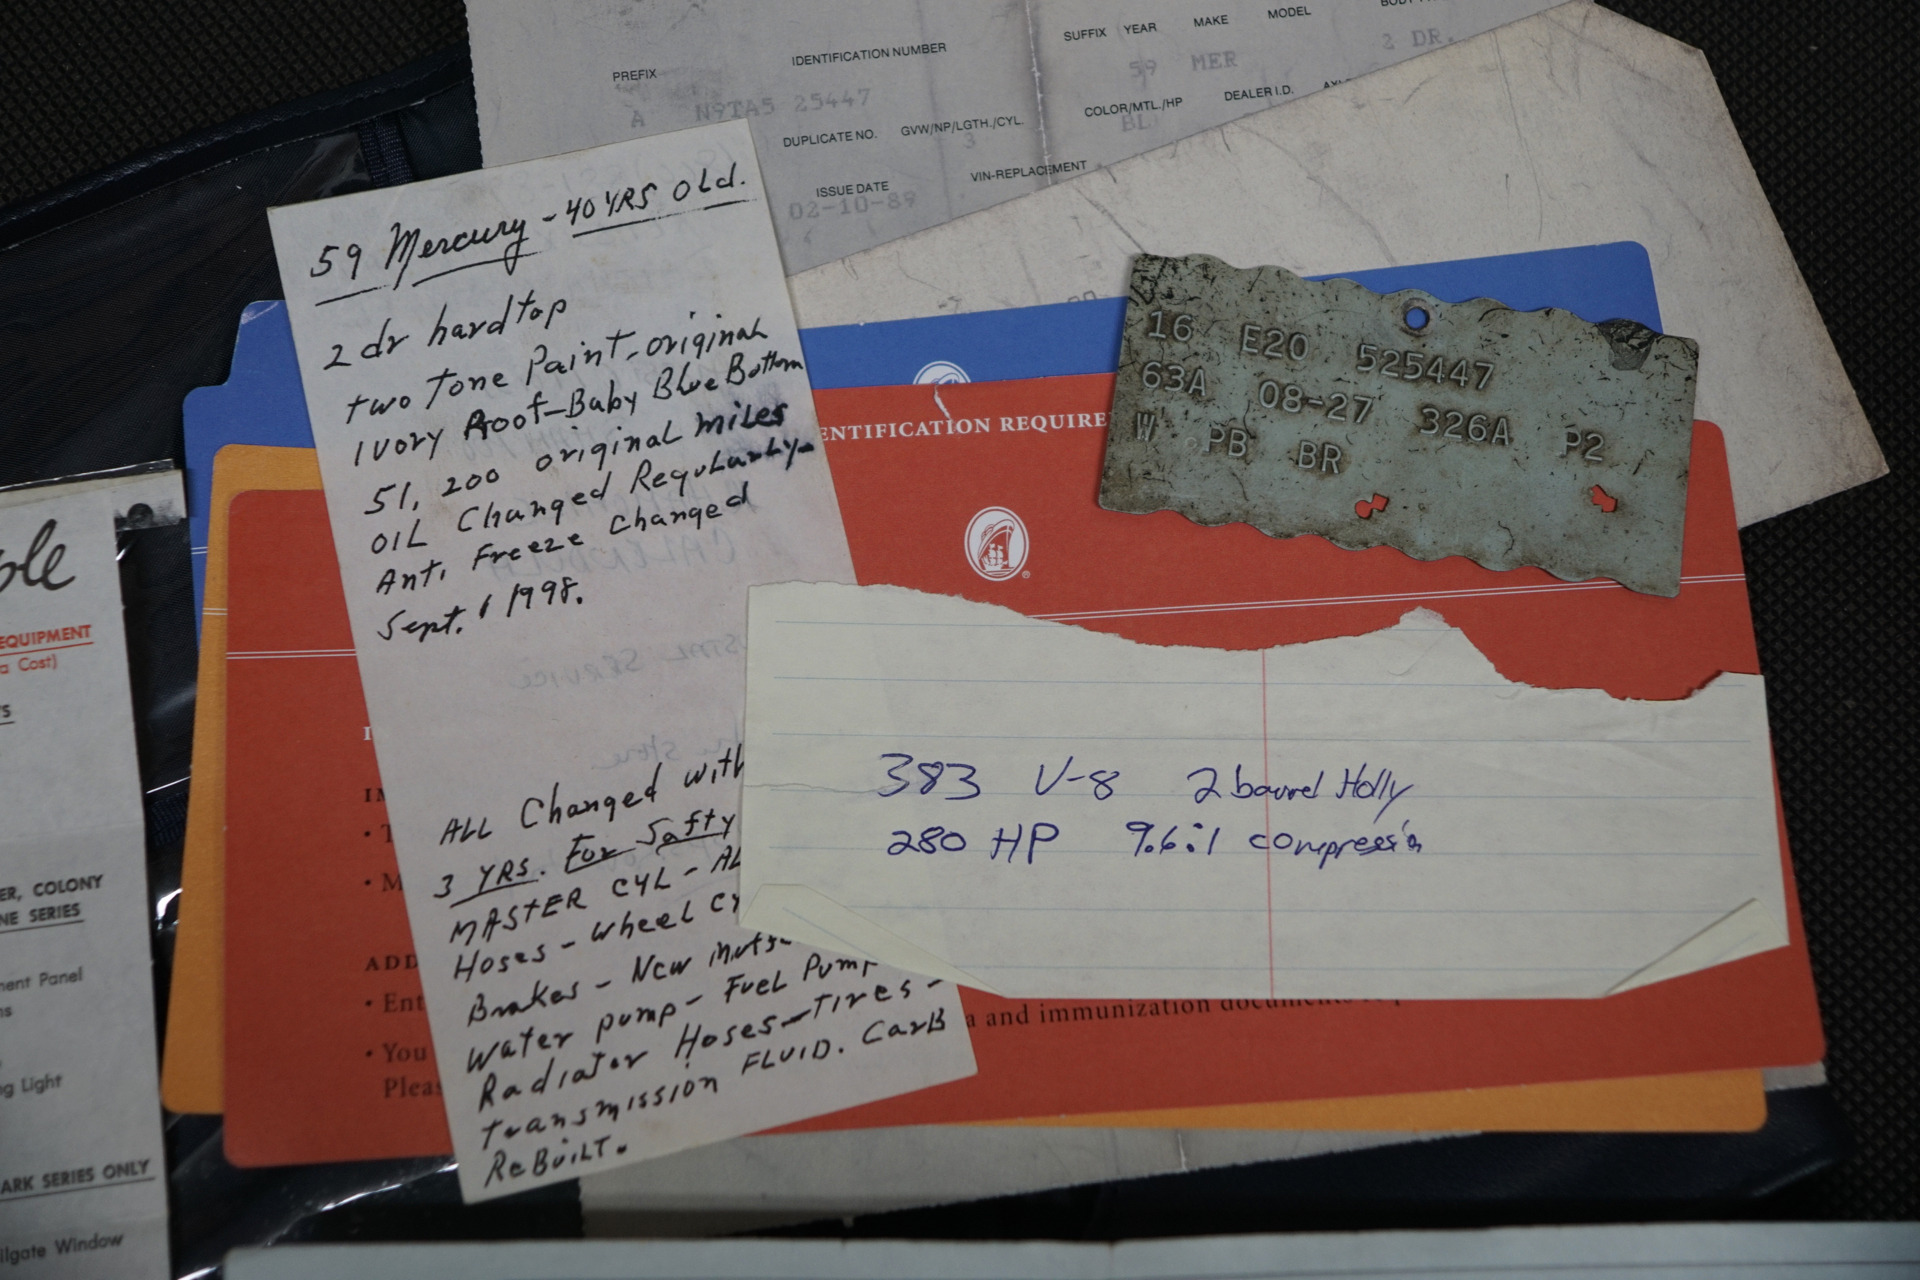 PREFIX IDENTIFICATION NUMBER SUFFIX YEAR MAKE MODEL
A N9TA5 25447 59 MER 2 DR.
DUPLICATE NO. GVW/NP/LGTH./CYL. COLOR/MTL./HP DEALER I.D.
3 BL
ISSUE DATE VIN-REPLACEMENT
02-10-89
59 Mercury - 40 YRS Old.
2 dr hardtop
two Tone Paint-original
Ivory Roof-Baby Blue Bottom
51,200 original miles
OIL Changed Regularly-
Anti Freeze changed
Sept. 1 1998.
ALL Changed with
3 YRS. For Safty
MASTER CYL - AL
Hoses - wheel CY
Brakes - New
water pump - Fuel Pump
Radiator Hoses - Tires -
transmission FLUID. CarB
ReBuilt.
16 E20 525447
63A 08-27 326A P2
W PB BR
ENTIFICATION REQUIRE
383 V-8 2 barrel Holly
280 HP 9.6:1 compression
I
• T
• M
ADD
• Ent
a and immunization documents
• You
Pleas
ble
EQUIPMENT
a Cost)
ER, COLONY
NE SERIES
ment Panel
ns
ng Light
ARK SERIES ONLY
ilgate Window